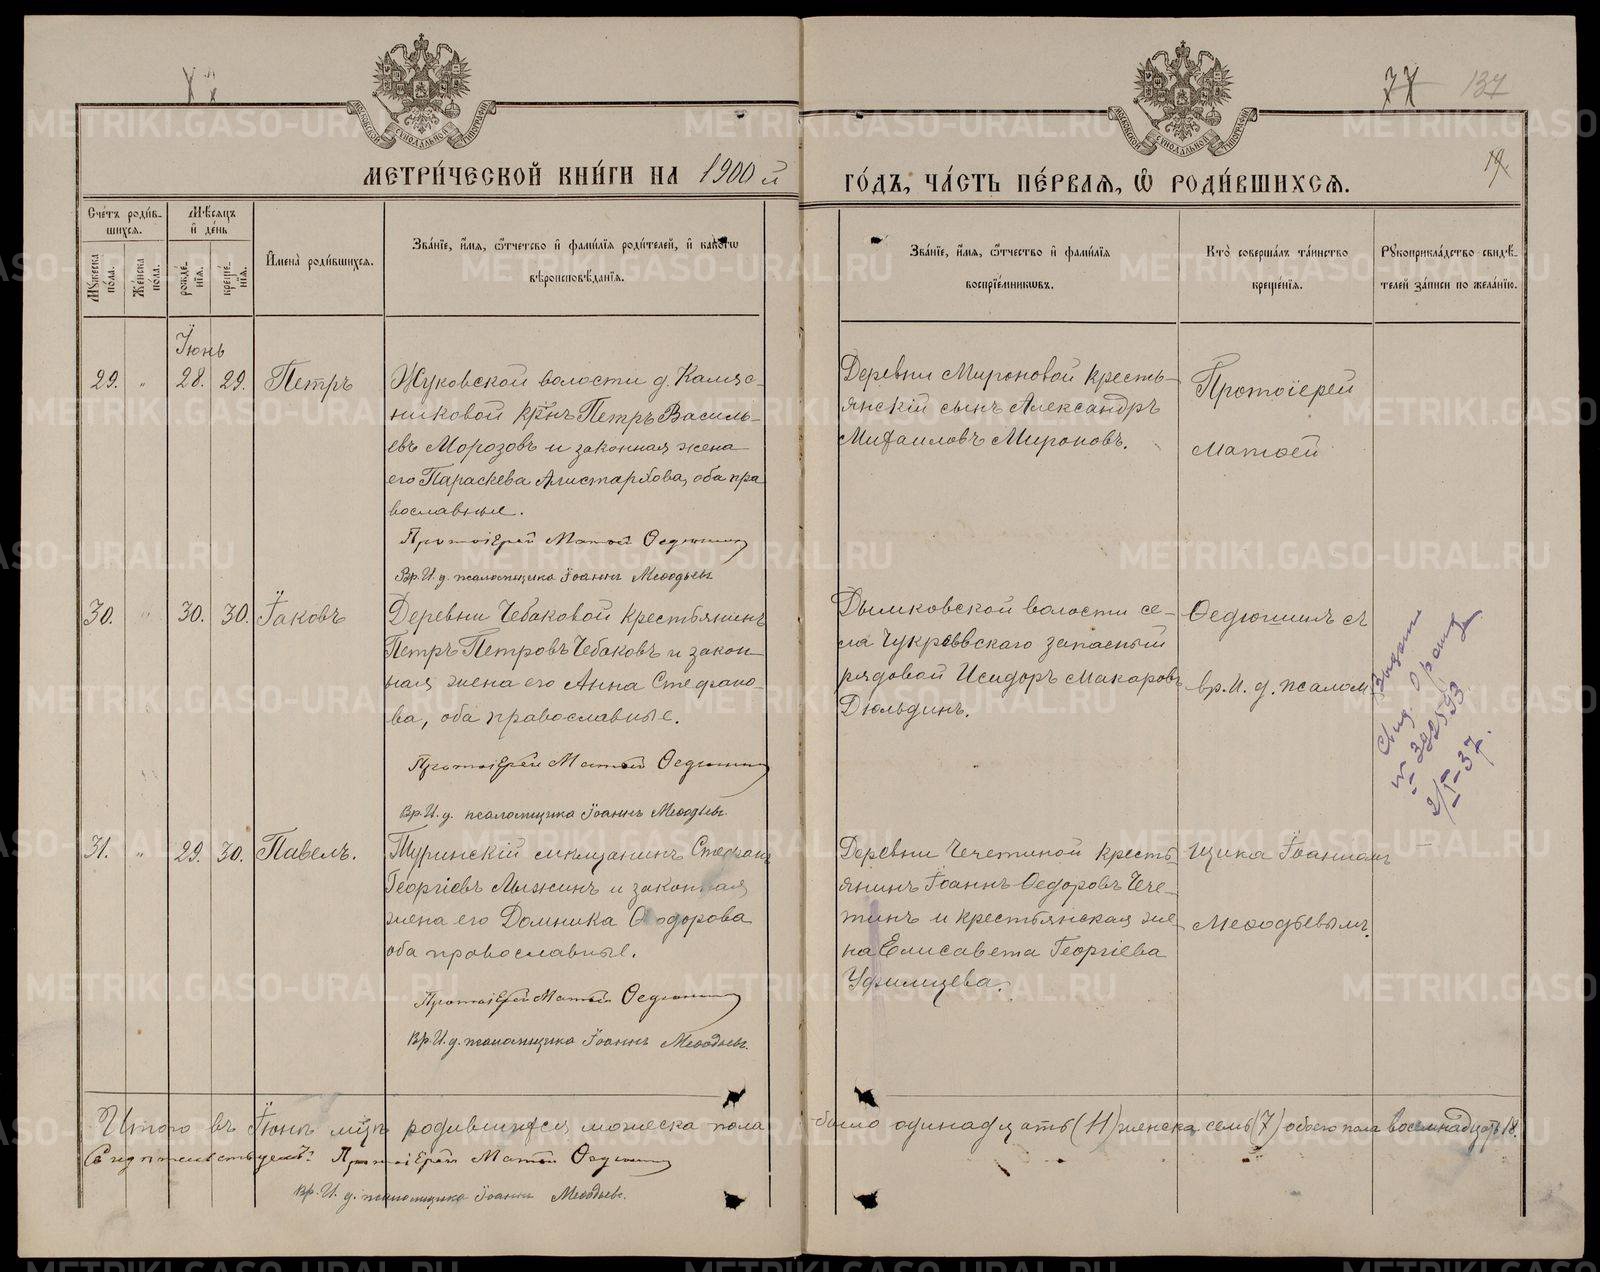 77 137
19
МЕТРИ́ЧЕСКОЙ КНИ́ГИ НА 1900 й ГО́ДЪ, ЧА́СТЬ ПЕ́РВАѦ, Ѽ РОДИ́ВШИХСѦ.
Сче́тъ роди́в-
шихсѧ.
Мѣ́сѧцъ
и҆ де́нь
Мꙋ́жеска
по́ла.
Же́нска
по́ла.
рожде́-
нїѧ.
креще́-
нїѧ.
И҆мена̀ роди́вшихсѧ.
Зва́нїе, и҆́мѧ, ѻ҆́тчество и҆ фами́лїѧ роди́телей, и҆ како́гѡ
вѣроисповѣ́данїѧ.
Зва́нїе, и҆́мѧ, ѻ҆́тчество и҆ фами́лїѧ
воспрїе́мникѡвъ.
Кто̀ соверша́лъ та́инство
креще́нїѧ.
Рꙋкоприкла́дство свидѣ́-
телей за́писи по жела́нїю.
Іюнь
29. „ 28. 29. Петръ
Жуковской волости д. Калмяс-
никовой кр-нъ Петръ Василь-
евъ Морозовъ и законная жена
его Параскева Аристархова, оба пра
вославные.
Протоіерей Матѳей Ѳедюшинъ
Вр. И. д. псаломщика Іоаннъ Меѳодьевъ
Деревни Мироновой кресть-
янскій сынъ Александръ
Михаиловъ Мироновъ.
Протоіерей
Матѳей
30. „ 30. 30. Іаковъ
Деревни Чебаковой крестьянинъ
Петръ Петровъ Чебаковъ и закон-
ная жена его Анна Стефано-
ва, оба православные.
Протоіерей Матѳей Ѳедюшинъ
Вр. И. д. псаломщика Іоаннъ Меѳодьевъ
Дымковской волости се-
ла Чукреевскаго запасный
рядовой Исидоръ Макаровъ
Дюльдинъ.
Ѳедюшинъ съ
вр. И. д. псалом
Выдана
Свид. о
№ 392593
2/I-37.
31. „ 29. 30. Павелъ.
Туринскій мѣщанинъ Стефанъ
Георгіевъ Лыжинъ и законная
жена его Домника Ѳеодорова
оба православные.
Протоіерей Матѳей Ѳедюшинъ
Вр. И. д. псаломщика Іоаннъ Меѳодьевъ.
Деревни Чечеткиной кресть
янинъ Іоаннъ Ѳедоровъ Чече-
ткинъ и крестьянская же-
на Елисавета Георгіева
Уфимцева.
щика Іоанномъ
Меѳодьевымъ.
Итого въ Іюнѣ мѣцѣ родившихся мужеска пола было одинадцать (11) женска семь (7) обоего пола восемнадцать 18.
Свидетельствуемъ: Протоіерей Матѳей Ѳедюшинъ
Вр. И. д. псаломщика Іоаннъ Меѳодьевъ.
METRIKI.GASO-URAL.RU